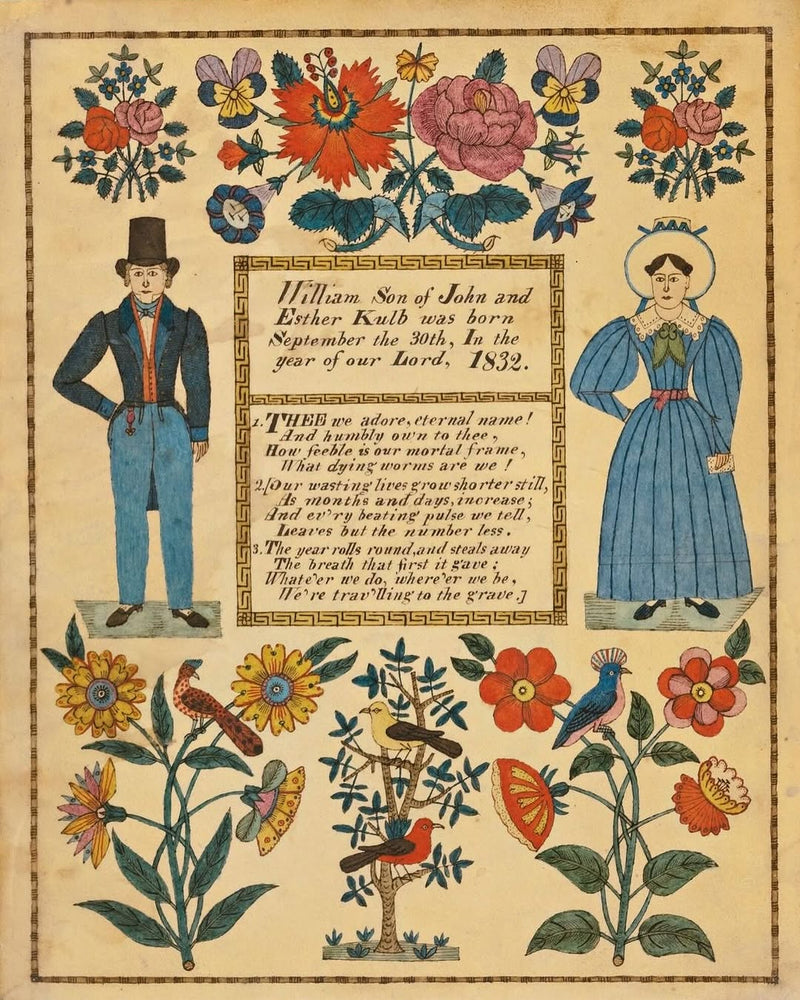 William Son of John and
Esther Kulb was born
September the 30th, In the
year of our Lord, 1832.
1. THEE we adore, eternal name!
And humbly own to thee,
How feeble is our mortal frame,
What dying worms are we!
2. [Our wasting lives grow shorter still,
As months and days, increase;
And ev'ry beating pulse we tell,
Leaves but the number less.
3. The year rolls round, and steals away
The breath that first it gave;
Whate'er we do, where'er we be,
We're trav'lling to the grave.]